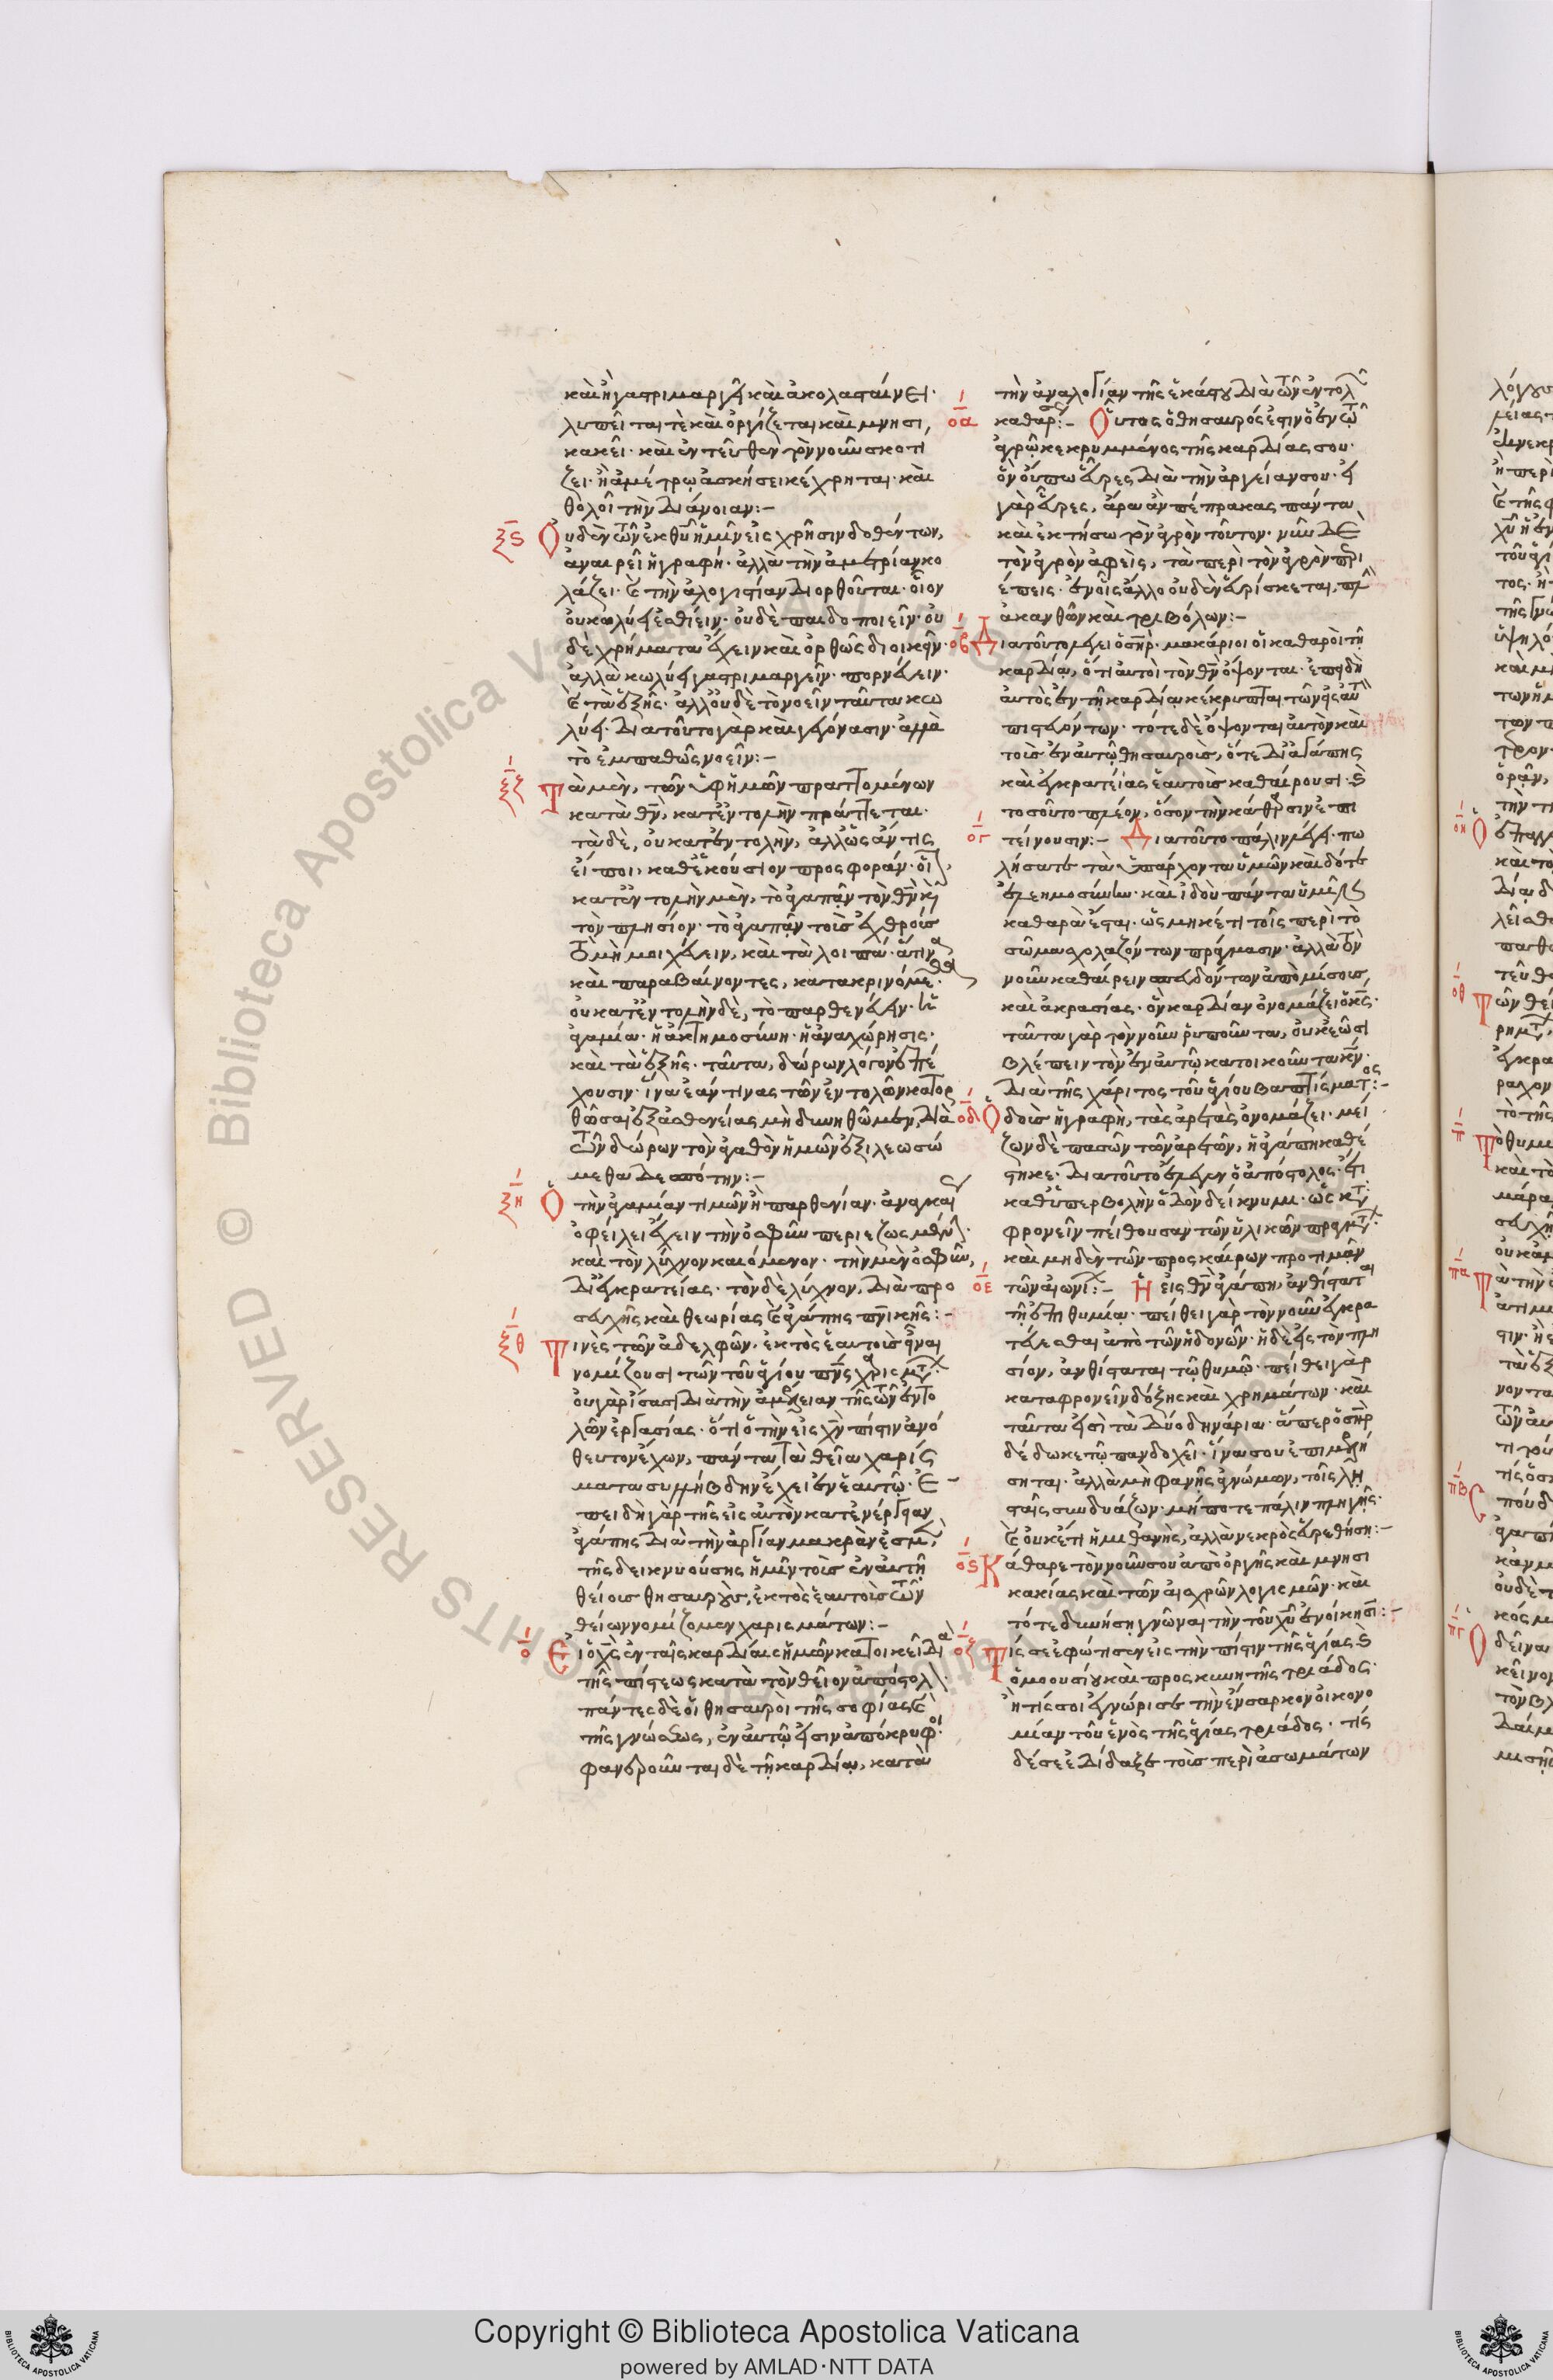 καὶ ἢ γαστριμαργεῖ καὶ ἀκολασταίνει·
λυπεῖται τὲ καὶ ὀργίζεται καὶ μνησι
κακεῖ· καὶ ἐντεῦθεν τὸν νοῦν σκοτί
ζει· ἢ ἀμέτρῳ ἀσκήσει κέχρηται· καὶ
θολοῖ τὴν διάνοιαν:–
ξϛ Οὐδὲν τῶν ἐκ θῦ ἡμῖν εἰς χρῆσιν δοθέντων,
ἀναιρεῖ ἡ γραφή· ἀλλὰ τὴν ἀμετρίαν κο
λάζει· καὶ τὴν ἀλογιστίαν διορθοῦται· οἷον
οὐ κωλύει ἐσθίειν· οὐδὲ παιδοποιεῖν· οὐ
δὲ χρήματα ἔχειν καὶ ὀρθῶς διοικεῖν·
ἀλλὰ κωλύει γαστριμαργεῖν· πορνεύειν·
καὶ τὰ ἑξῆς· ἀλλ' οὐδὲ τὸ νοεῖν ταῦτα κω
λύει· διατοῦτο γὰρ καὶ γεγόνασιν· ἀλλὰ
τὸ ἐμπαθῶς νοεῖν:–
ξζ Τὰ μὲν, τῶν ὑφ' ἡμῶν πραττομένων
κατὰ θν̅, κατ' ἐντολὴν πράττεται·
τὰ δὲ, οὐ κατ' ἐντολὴν, ἀλλ' ὡς ἄν τις
εἴποι, καθ' ἑκούσιον προσφοράν· οἷον,
κατ' ἐντολὴν μὲν, τὸ ἀγαπᾶν τὸν θν̅ καὶ
τὸν πλησίον· τὸ ἀγαπᾶν τοὺς ἐχθρούς
τὸ μὴ μοιχεύειν, καὶ τὰ λοιπά· ἅτινα
καὶ παραβαίνοντες, κατακρινόμεθα·
οὐ κατ' ἐντολὴν δὲ, τὸ παρθενεύειν· ἡ
ἀγαμία· ἡ ἀκτημοσύνη· ἡ ἀναχώρησις·
καὶ τὰ ἑξῆς· ταῦτα, δώρων λόγον ἐπέ
χουσιν· ἵνα ἐάν τινας τῶν ἐντολῶν κατορ
θῶσαι ἐξ ἀσθενείας μὴ δυνηθῶμεν, διὰ
τῶν δώρων τὸν ἀγαθὸν ἡμῶν ἐξιλεωσώ
μεθα δεσπότην:–
ξη Ὁ τὴν ἀγαμίαν τιμῶν ἢ παρθενίαν· ἀναγκαί
ὀφείλει ἔχειν τὴν ὀσφῦν περιεζωσμένην·
καὶ τὸν λύχνον καιόμενον· τὴν μὲν ὀσφῦν,
δι' ἐγκρατείας· τὸν δὲ λύχνον, διὰ προ
σευχῆς καὶ θεωρίας καὶ ἀγάπης πνικῆς:–
ξθ Τινὲς τῶν ἀδελφῶν· ἐκτὸς ἑαυτοὺς εἶναι
νομίζουσι τῶν τοῦ ἁγίου πνς χαρισμάτων·
οὐ γὰρ ἴσασι διὰ τὴν ἀμέλειαν τῆς τῶν ἐντο
λῶν ἐργασίας· ὅτι ὁ τὴν εἰς χν̅ πίστιν ἀνό
θευτον ἔχων, πάντα τὰ θεῖα χαρίς
ματα συλλήβδην ἔχει ἐν ἑαυτῷ· ἐ
πειδὴ γὰρ τῆς εἰς αὐτὸν κατ' ἐνέργειαν
ἀγάπης διὰ τὴν ἀργίαν μακράν ἐσμεν,
τῆς δεικνυούσης ἡμῖν τοὺς ἐν αὐτῇ
θείους θησαυροὺς, ἐκτὸς ἑαυτοὺς τῶν
θείων νομίζομεν χαρισμάτων:–
ο Εἰ ὁ χς̅ ἐν ταῖς καρδίαις ἡμῶν κατοικεῖ διὰ
τῆς πίστεως κατὰ τὸν θεῖον ἀπόστολον·
πάντες δὲ οἱ θησαυροὶ τῆς σοφίας καὶ
τῆς γνώσεως, ἐν αὐτῷ εἰσιν ἀπόκρυφοι·
φανεροῦνται δὲ τῇ καρδίᾳ, κατὰ
τὴν ἀναλογίαν τῆς ἑκάστου διὰ τῶν ἐντολῶν
οα καθάρσεως:– Οὗτος ὁ θησαυρός ἐστιν ὁ ἐν τῷ
ἀγρῷ κεκρυμμένος τῆς καρδίας σου·
ὃν οὔπω εὗρες διὰ τὴν ἀργείαν σου· εἰ
γὰρ εὗρες, ἄρα ἂν πέπρακας πάντα
καὶ ἐκτήσω τὸν ἀγρὸν τοῦτον· νῦν δὲ
τὸν ἀγρὸν ἀφεὶς, τὰ περὶ τὸν ἀγρὸν περι
έπεις· ἐν οἷς ἄλλο οὐδὲν εὑρίσκεται, πλὴν
ἀκανθῶν καὶ τριβόλων:–
οβ Διατοῦτο λέγει ὁ σηρ· μακάριοι οἱ καθαροὶ τῇ
καρδίᾳ, ὅτι αὐτοὶ τὸν θν̅ ὄψονται· ἐπειδὴ
αὐτὸς ἐν τῇ καρδίᾳ κέκρυπται τῶν εἰς αὐτὸν
πιστευόντων· τότε δὲ ὄψονται αὐτὸν καὶ
τοὺς ἐν αὐτῷ θησαυροὺς, ὅτε δι' ἀγάπης
καὶ ἐγκρατείας ἑαυτοὺς καθαίρουσι· καὶ
τοσοῦτο πλέον, ὅσον τὴν κάθαρσιν ἐπι
ογ τείνουσιν:– Διατοῦτο πάλιν λέγει· πω
λήσατε τὰ ὑπάρχοντα ὑμῶν καὶ δότε
ἐλεημοσύνην· καὶ ἰδοὺ πάντα ὑμῖν
καθαρὰ ἔσται· ὡς μηκέτι τοῖς περὶ τὸ
σῶμα σχολαζόντων πράγμασιν· ἀλλὰ τὸν
νοῦν καθαίρειν σπευδόντων ἀπὸ μίσους
καὶ ἀκρασίας· ὃν καρδίαν ὀνομάζει ὁ κς̅·
ταῦτα γὰρ τὸν νοῦν ῥυποῦντα, οὐκ ἐῶσι
βλέπειν τὸν ἐν αὐτῷ κατοικοῦντα κν̅·
διὰ τῆς χάριτος τοῦ ἁγίου βαπτίσματος:–
οδ Ὁδοὺς ἡ γραφὴ, τὰς ἀρετὰς ὀνομάζει· μεί
ζων δὲ πασῶν τῶν ἀρετῶν, ἡ ἀγάπη καθέ
στηκε· διατοῦτο ἔλεγεν ὁ ἀπόστολος· ἔτι
καθ' ὑπερβολὴν ὁδὸν δείκνυμι· ὡς κατα
φρονεῖν πείθουσαν τῶν ὑλικῶν πραγμάτων·
καὶ μηδὲν τῶν προσκαίρων προτιμᾶν
οε τῶν αἰωνίων:– Ἡ εἰς θν̅ ἀγάπη, ἀνθίσταται
τῇ ἐπιθυμίᾳ· πείθει γὰρ τὸν νοῦν ἐγκρα
τεύεσθαι ἀπὸ τῶν ἡδονῶν· ἡ δὲ εἰς τὸν πλη
σίον, ἀνθίσταται τῷ θυμῷ· πείθει γὰρ
καταφρονεῖν δόξης καὶ χρημάτων· καὶ
ταῦτα εἰσὶ τὰ δύο δηνάρια· ἅπερ ὁ σηρ
δέδωκε τῷ πανδοχεῖ· ἵνα σου ἐπιμελή
σηται· ἀλλὰ μὴ φανῇς ἀγνώμων, τοῖς λῃ
σταῖς συνδυάζων· μήποτε πάλιν πληγῇς·
καὶ οὐκέτι ἡμιθανὴς, ἀλλὰ νεκρὸς εὑρεθήσῃ:–
οϛ Κάθαρε τὸν νοῦν σου ἀπὸ ὀργῆς καὶ μνησι
κακίας καὶ τῶν αἰσχρῶν λογισμῶν· καὶ
τότε δυνήσῃ γνῶναι τὴν τοῦ χῦ ἐνοίκησιν:–
οζ Τίς σε ἐφώτισεν εἰς τὴν πίστιν τῆς ἁγίας καὶ
ὁμοουσίου καὶ προσκυνητῆς τριάδος·
ἢ τίς σοι ἐγνώρισε τὴν ἔνσαρκον οἰκονο
μίαν τοῦ ἑνὸς τῆς ἁγίας τριάδος· τίς
δέ σε ἐδίδαξε τοὺς περὶ ἀσωμάτων
Copyright © Biblioteca Apostolica Vaticana
powered by AMLAD·NTT DATA